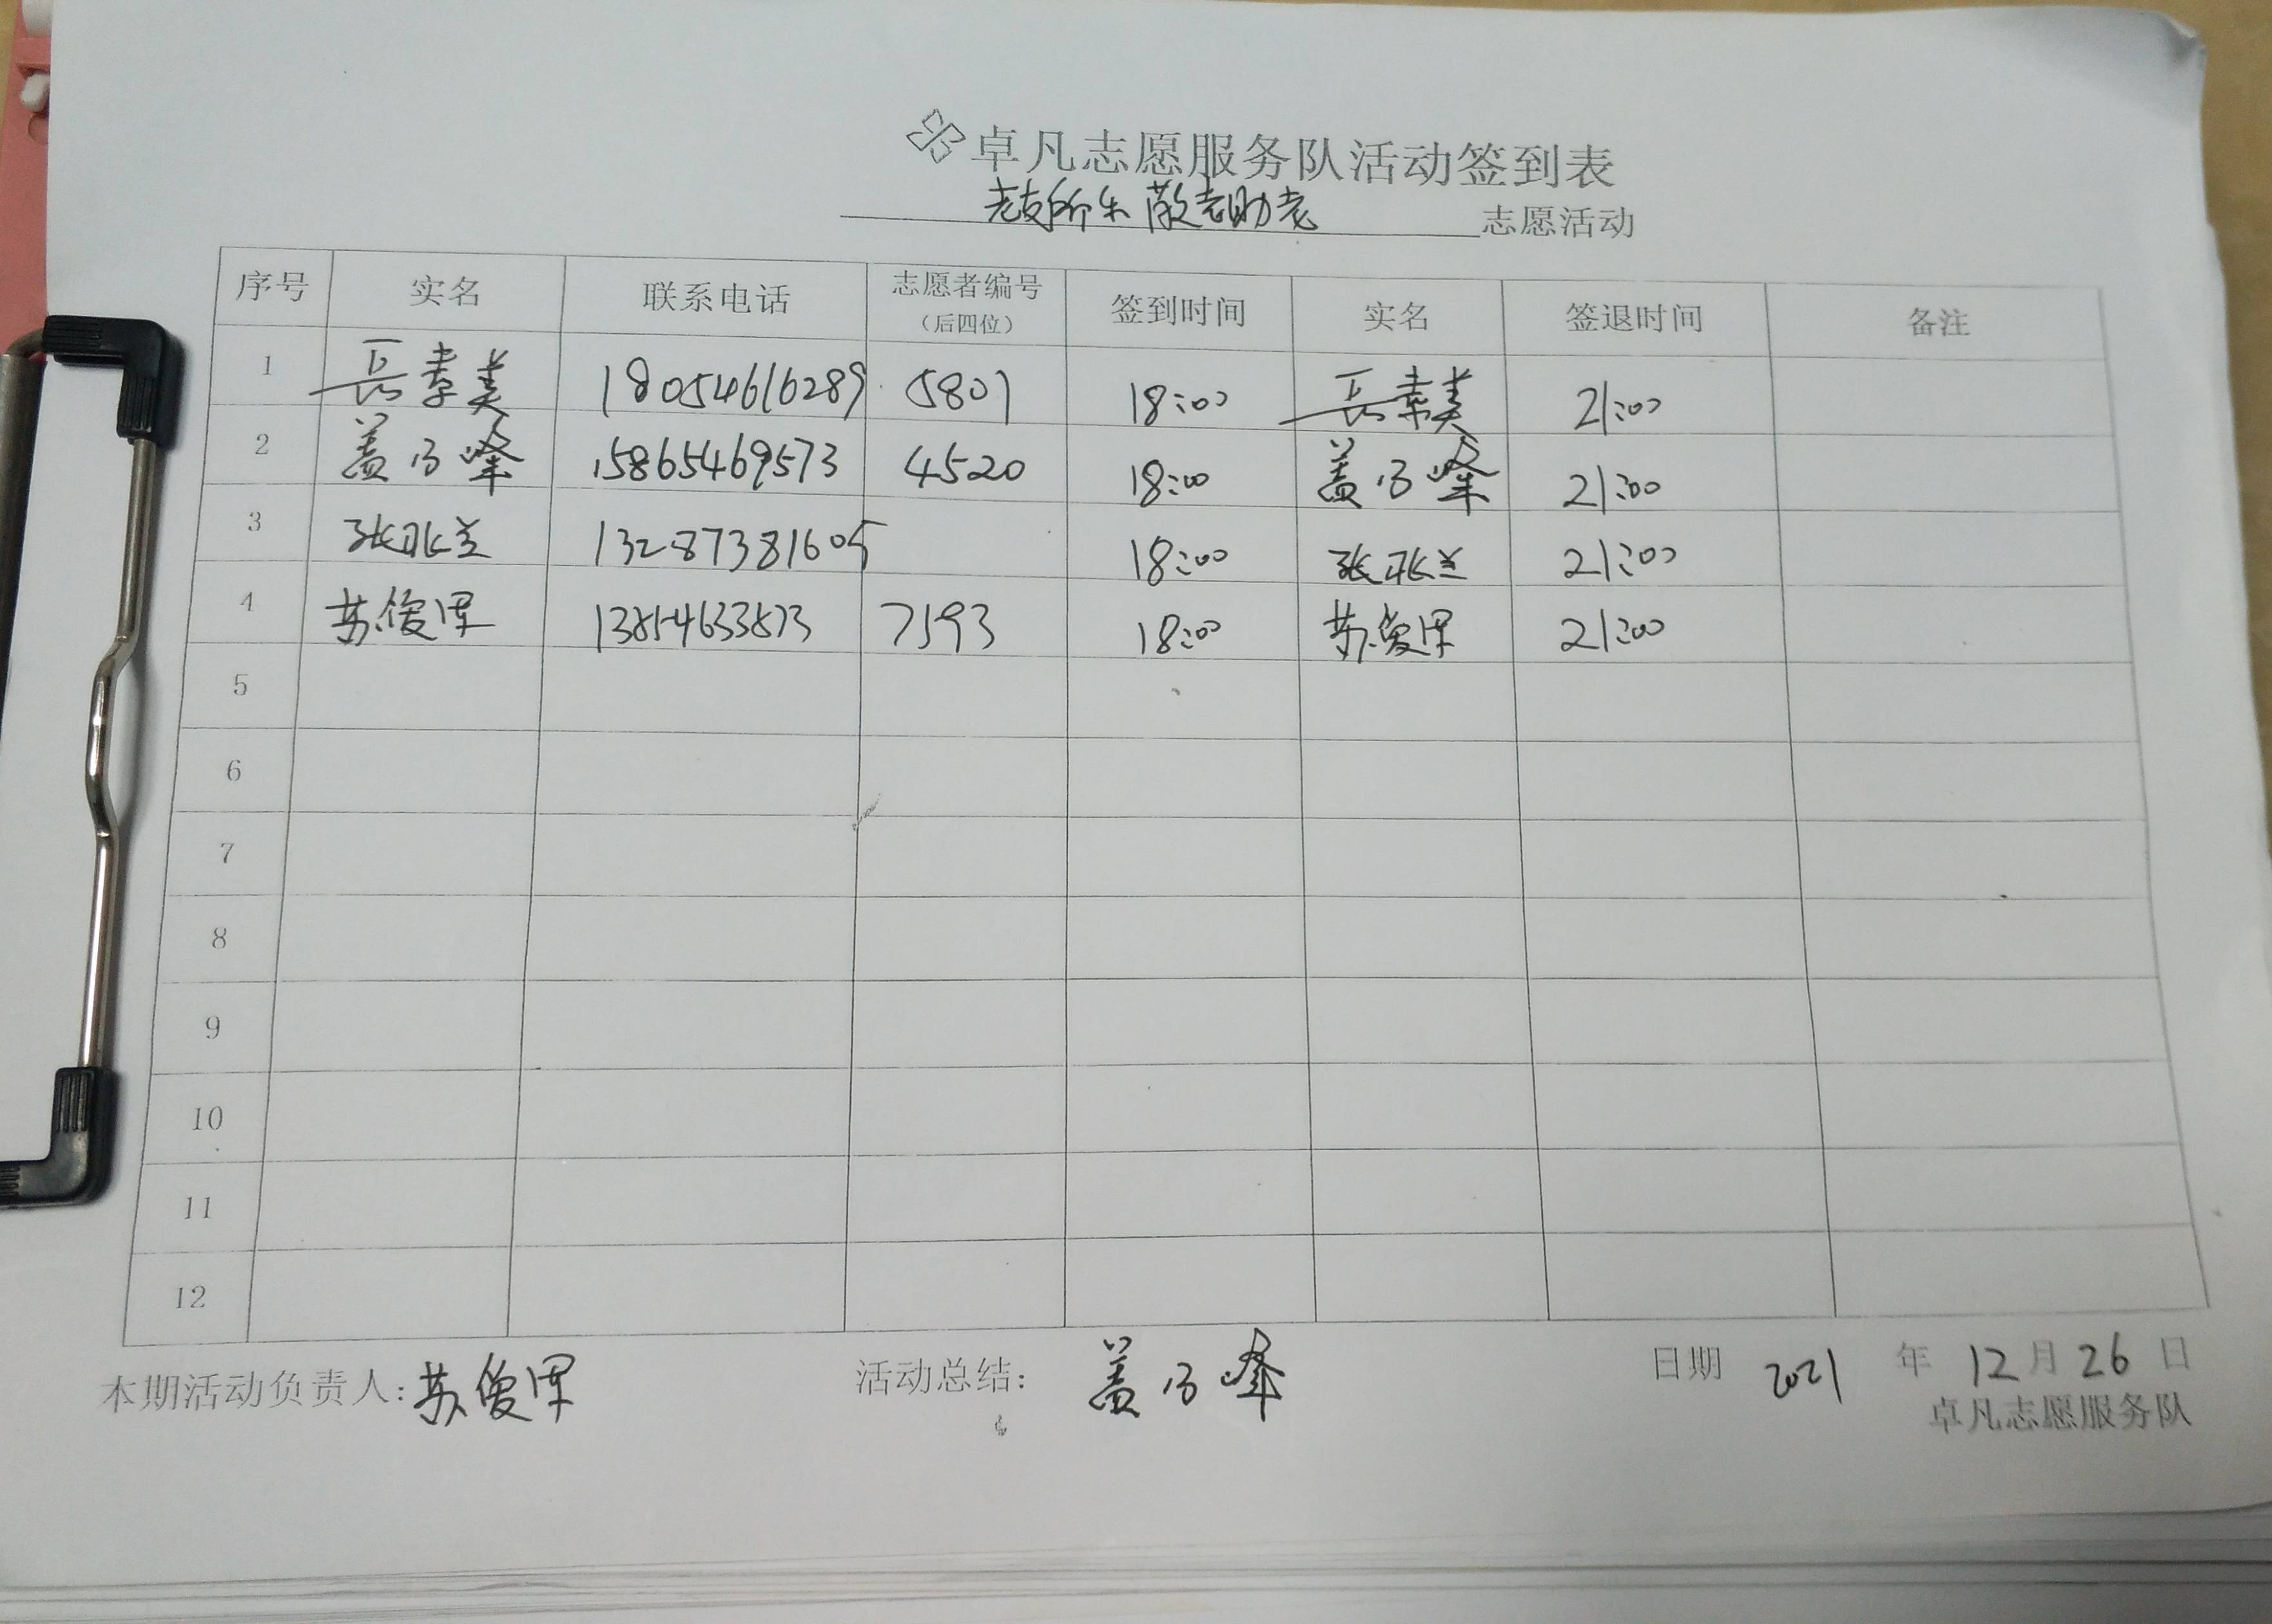 卓凡志愿服务队活动签到表
老有所乐 敬老助老 志愿活动
序号 实名 联系电话 志愿者编号（后四位） 签到时间 实名 签退时间 备注
1 18054616289 5801 18:00 21:00
2 盖乃峰 15865469573 4520 18:00 盖乃峰 21:00
3 13287381605 18:00 21:00
4 苏俊 13854633573 7593 18:00 苏俊 21:00
5
6
7
8
9
10
11
12
本期活动负责人: 苏俊 活动总结: 盖乃峰 日期 2021 年 12 月 26 日
卓凡志愿服务队